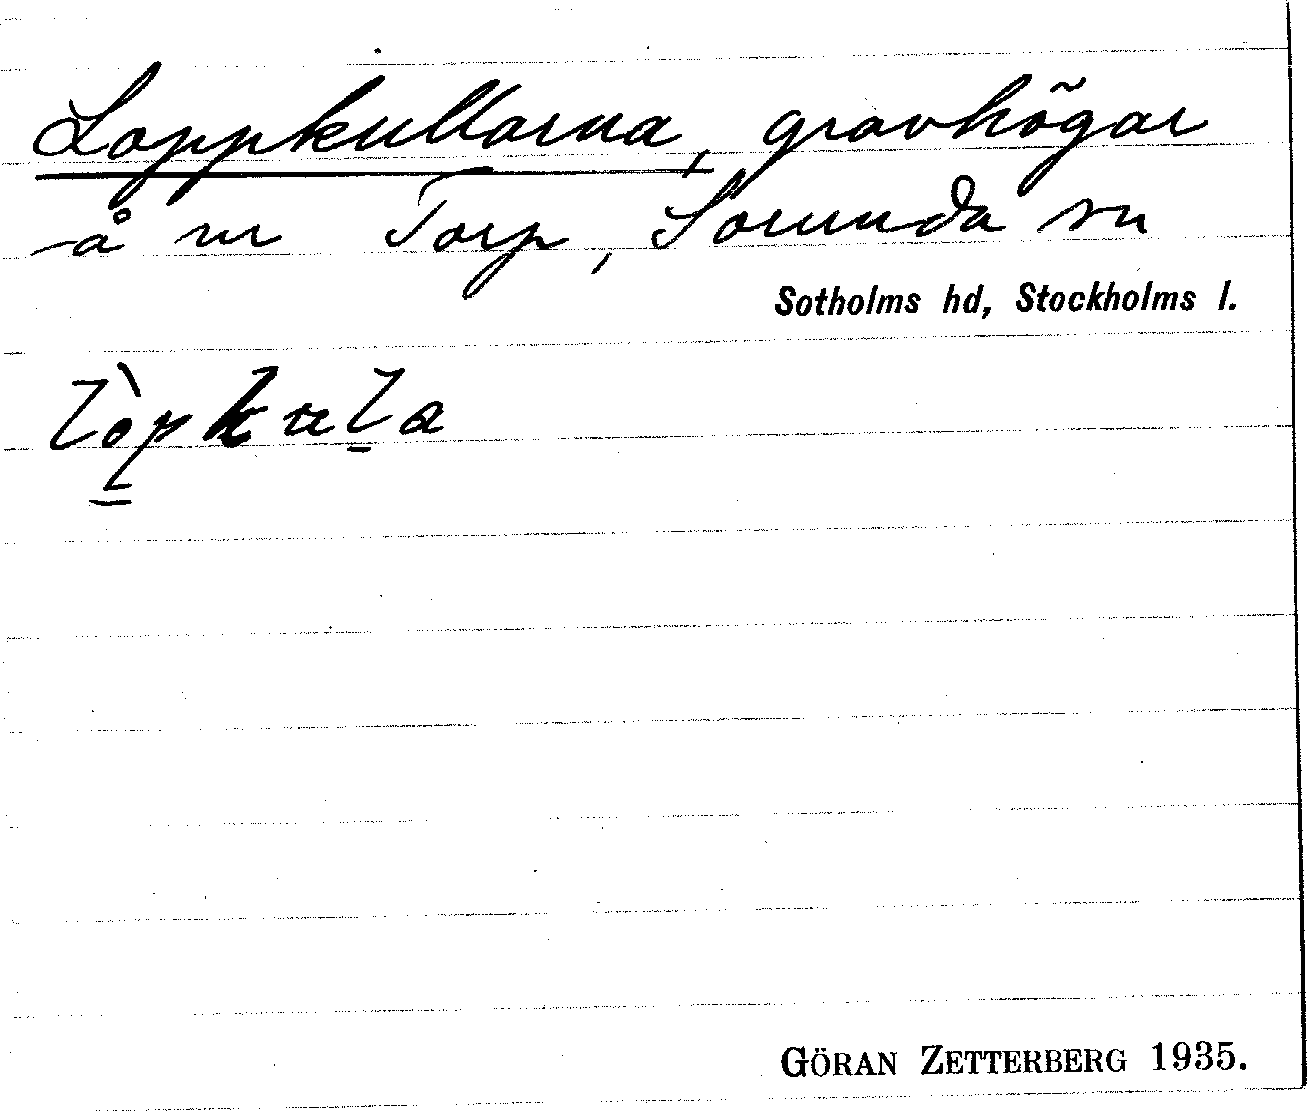 Loppkullarna, gravhögar
å nr Torp, Sorunda sn
Sotholms hd, Stockholms l.
lòpkula
GÖRAN ZETTERBERG 1935.